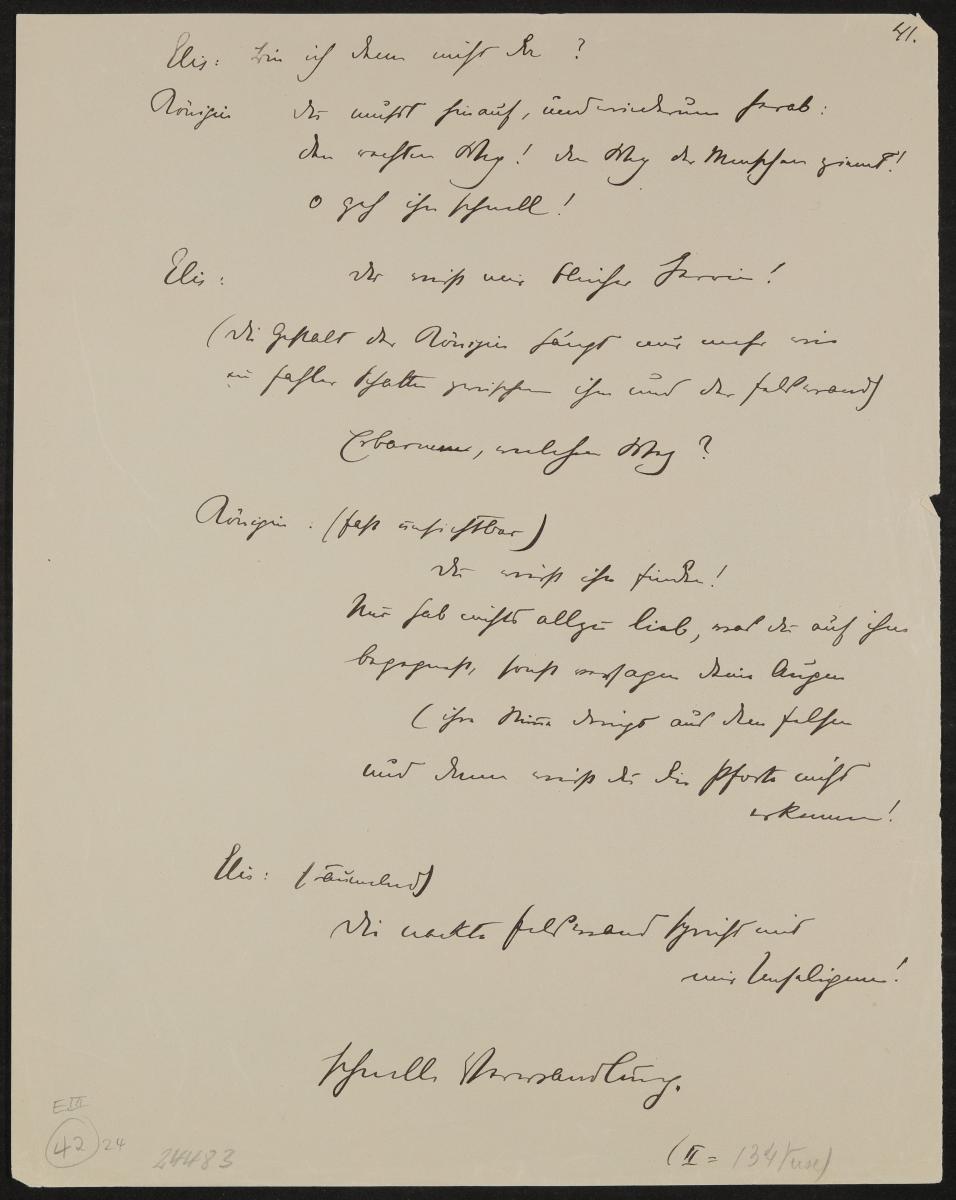 41.
Elis: Bin ich denn nicht da?
Königin Du mußt hinauf, und wiederum herab:
den rechten Weg! den Weg der Menschen ziemt!
o geh ihn schnell!
Elis: Du wirst mir bleicher Herrin!
(die Gestalt der Königin hängt nur mehr wie
ein fahler Schatten zwischen ihm und der Felswand)
Erbarmen, welchen Weg?
Königin: (fast unsichtbar)
Du wirst ihn finden!
Nur hab nichts allzu lieb, was du auf ihm
begegnest, sonst versagen deine Augen
(ihre Stimme dringt aus dem Felsen
und dann wirst du die Pforte nicht
erkennen!
Elis: (taumelnd)
Die nackte Felswand spricht mit
mir Unseligem!
Schnelle Verwandlung.
E III
42 24
24483
(II = 134 Verse)